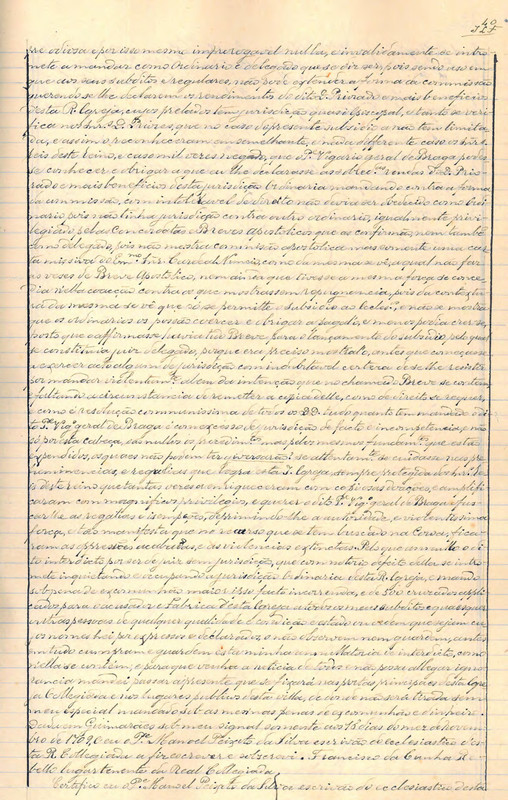 49
327
se odiosa e por isso mesmo improrogavel nulla, e invalidamente se intro
mete a mandar como Ordinario e delegado que se diz ser pois sendo a isen
que aos seus subditos e regulares, não pode extender a forma da commissão
querendo se lhe declarem os rendimentos do dito Priorado e mais beneficios
desta R. Igreja, cujos prelados tem jurisdição quasi Episcopal, e tanto se veri
fica nos Snr.es D. Priores, que no caso do presente subsidio a não tem limita
da, e assim o reconheceram em semelhante, e nada differente caso os
deste Reino, e caso mil vezes negado, que o P.e Vigario geral de Braga podes
se conhecer e obrigar a que se lhe declarasse as rendas do D. Prio
rado e mais beneficios desta jurisdição ordinaria mandando contra a forma
da commissão, com intoleravel de direito não devia ser deduzido como Ordi
nario, pois não tinha jurisdição contra outro ordinario, igualmente privi
legiado pelas Concordatas e Breves Apostolicos que as confirma, nem tambe
como delegado, pois não mostra commissão apostolica mas somente uma car
ta missiva do Em.mo Snr. Cardeal Nuncio, como da mesma se vê, a qual não faz
as vezes de Breve Apostolico, nem ainda que tivesse a mesma força se conce
dia nella coacção contra os que mostrassem repugnancia, pois da contextu
ra da mesma se vê que só se permitte o subsidio ao Eccles.co, e não se mostra
que os ordinarios os possão coarear e obrigar a pagal-o, e menos podia crer-se,
posto que o affirmasse havia tal Breve para o lançamento do subsidio, pelo qual
se constituia juiz delegado, porque era preciso mostral-o, antes que começasse
a exercer acto algum de jurisdição com indubitavel certeza de se lhe resistir
por mandar violentam.te alem da intenção que no chamado Breve se contem
e faltando a circunstancia de remetter a copia delle, como de direito se requer,
e como é resolução communissima de todos os DD. tudo quanto tem mandado o di
to P.e Vig.o geral de Braga é com excesso de jurisdição de facto e incompetencia, e não
só por esta cabeça, são nullos os procedim.tos, mas pelos mesmos fundam.tos que estão
expendidos, os quaes não podem ter, se attentam.te se cuidasse nas pre
eminencias, e regalias que logra esta S. Igreja, sempre protegida dos Snr.es Reis
d'este reino que tantas vezes a enriqueceram com copiosas doações, e amplifi
caram com magnificos privilegios, e querer o dito P.e Vig.o geral de Braga offus
car-lhe as regalias e isempções, deprimindo-lhe a authoridade, é violentissima
força, e tão manifesta que no recurso que se tem buscado na Coroa, fica
ram as oppressões acabadas, e as violencias extinctas. Pelo que annullo o di
to interdicto por ser de juiz sem jurisdição, que com notorio defeito della se intro
mete inquietando e occupando a jurisdição Ordinaria desta R. Igreja, e mando
sob pena de excomunhão maior ipso facto incorrenda, e de 500 cruzados appli
cados para o accusador e Fabrica d'esta Igreja a todos os meus subditos e quaesquer
outras pessoas de qualquer qualidade e condição e estado ou ordem que sejam cu
jos nomes hei por expressos e declarados o não observem nem guardem, antes
em tudo cumpram e guardem esta minha annullatoria e interdicto, como
nella se contem, e para que venha á noticia de todos, e não possa allegar igno
rancia mandei passar a presente que se fixará nas portas principaes desta Igre
ja Collegiada e nos lugares publicos desta villa, de donde não será tirada sem
meu Especial mandado sob as mesmas penas de excomunhão e dinheiro.
Dada em Guimarães sob meu signal somente aos 18 dias do mez de Novem
bro de 1769. E eu o P.e Manoel Peixoto da Silva escrivão do ecclesiastico d'es
ta R. Collegiada a fiz escrever e subscrevi. Francisco da Cunha Re
bello lugar tenente da Real Collegiada.
Certifico eu o P.e Manoel Peixoto da Silva escrivão do ecclesiastico desta